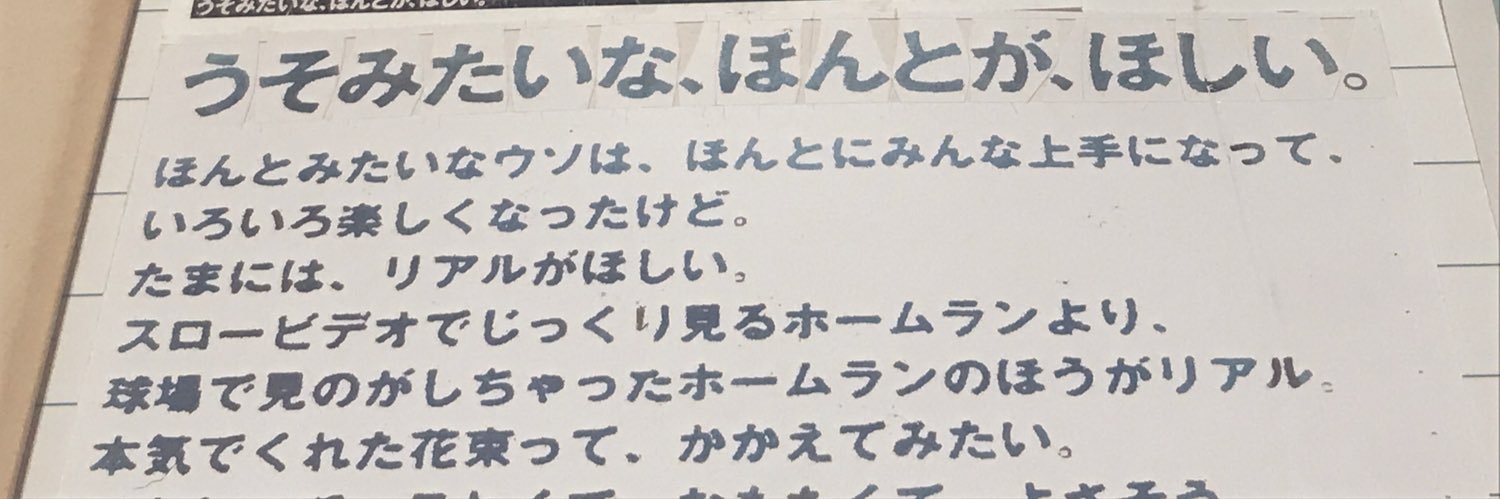 うそみたいな、ほんとが、ほしい。
うそみたいな、ほんとが、ほしい。
ほんとみたいなウソは、ほんとにみんな上手になって、
いろいろ楽しくなったけど。
たまには、リアルがほしい。
スロービデオでじっくり見るホームランより、
球場で見のがしちゃったホームランのほうがリアル。
本気でくれた花束って、かかえてみたい。